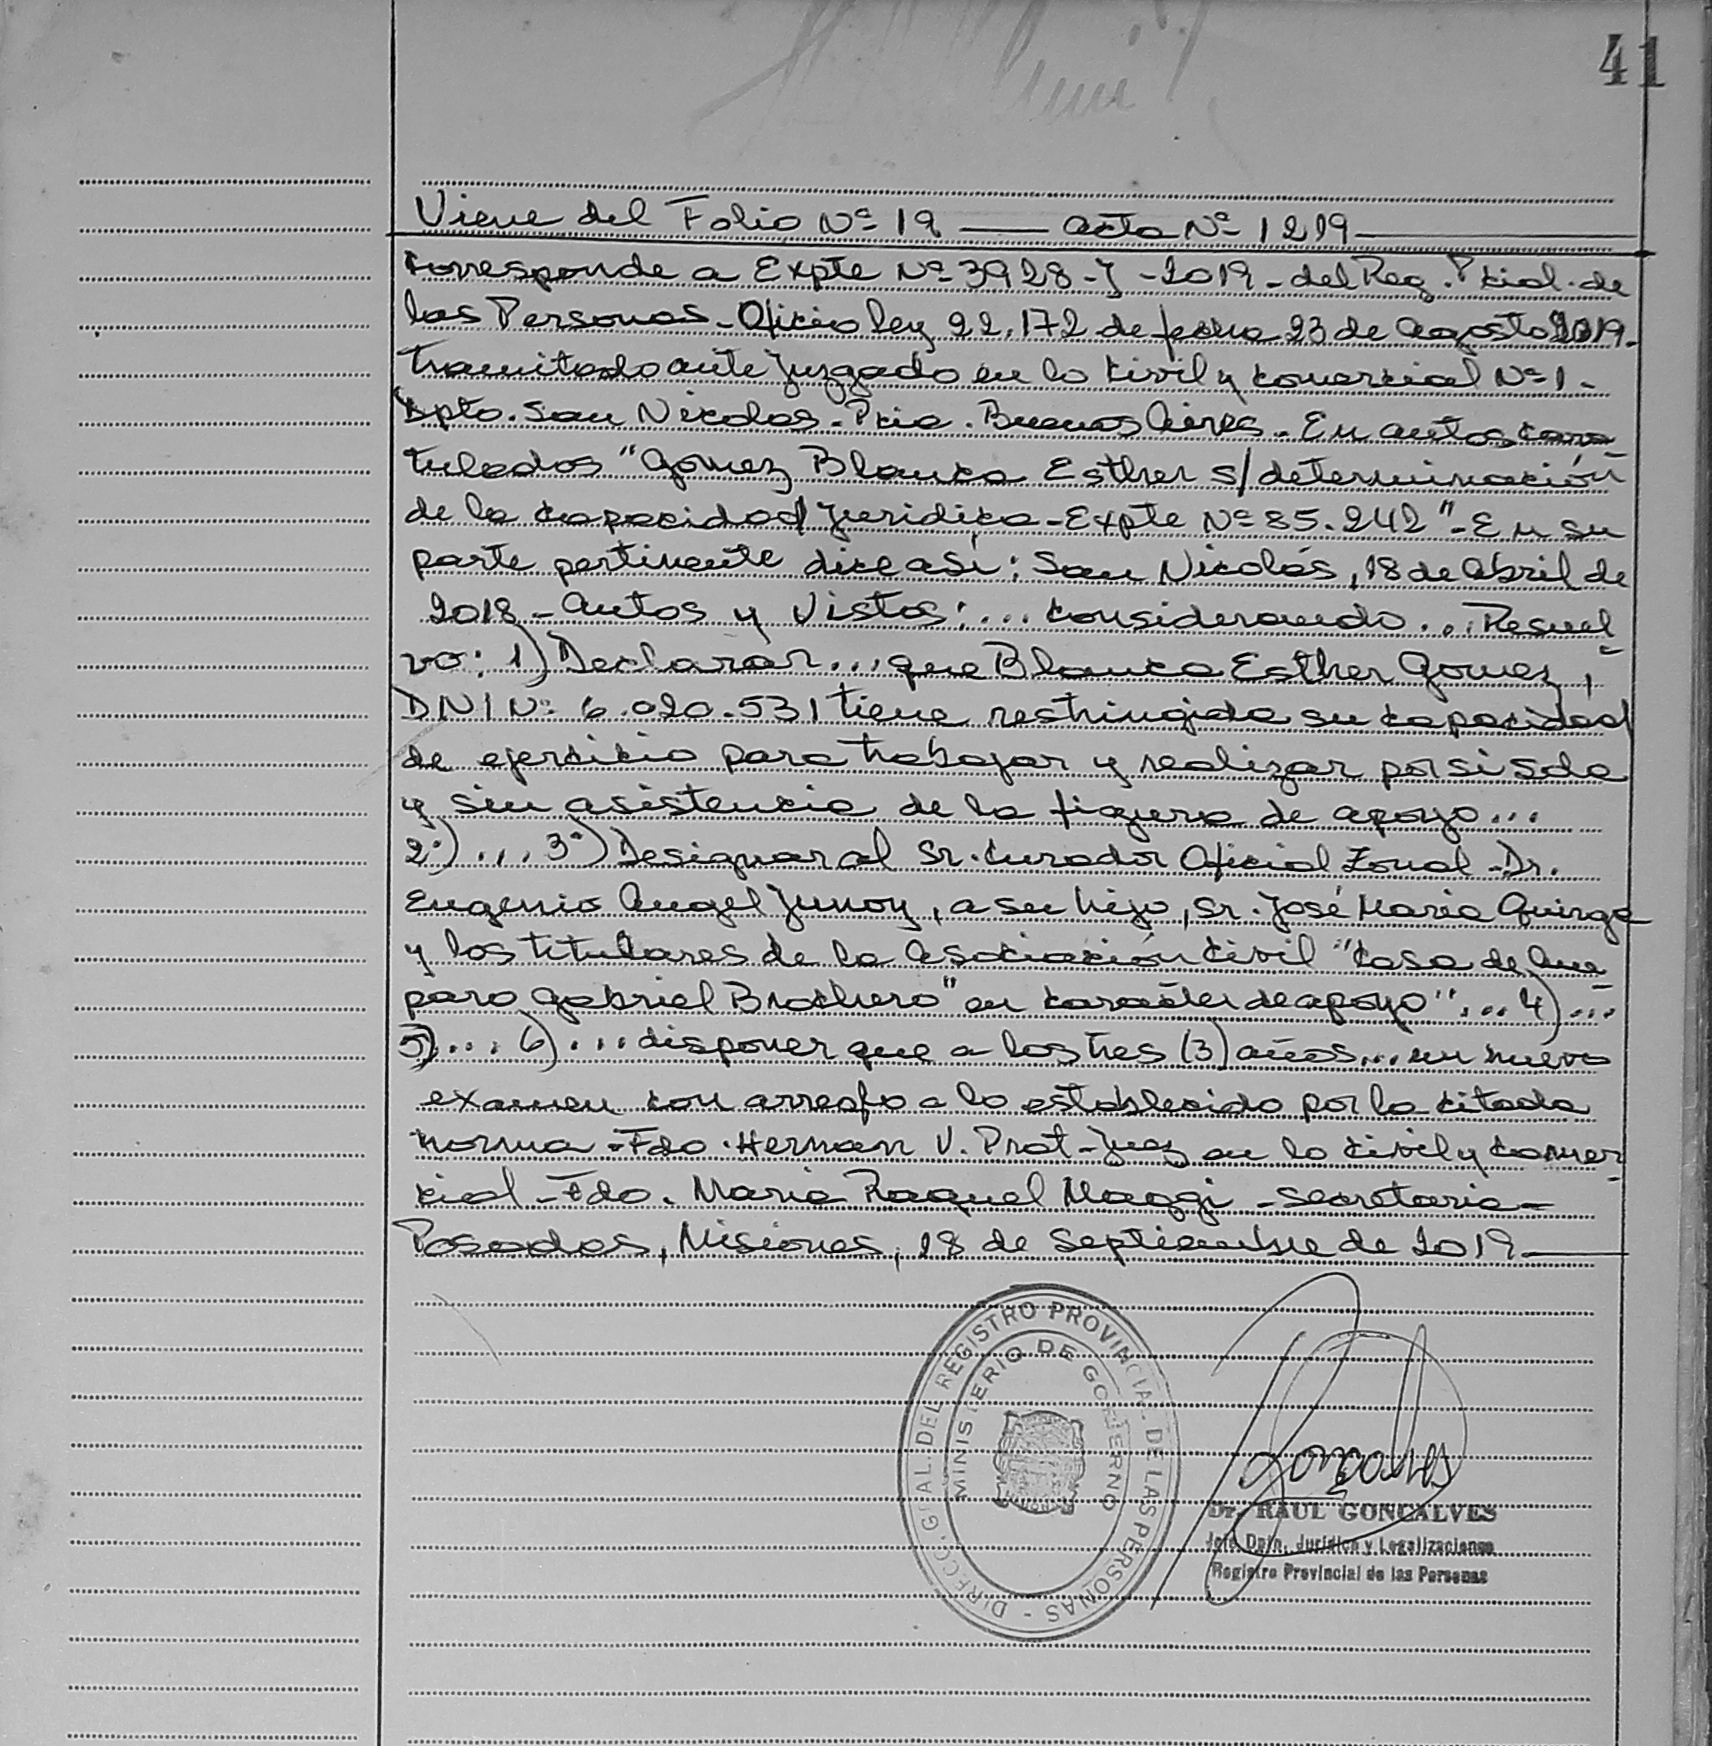 41
Viene del Folio Nº 19 — acta Nº 1219
Corresponde a Expte Nº 3928-J-2019-del Reg. Pcial. de
las Personas-Oficio Ley 22.172 de fecha 23 de agosto 2019.
tramitado ante Juzgado en lo Civil y Comercial Nº 1-
Dpto. San Nicolas-Pcia. Buenos Aires-En autos cara
tulados "Gomez Blanca Esther s/determinación
de la capacidad Juridica-Expte Nº 85.242"-En su
parte pertinente dice así: San Nicolás, 18 de abril de
2018-autos y Vistos:... Considerando... Resuel-
vo: 1) Declarar... que Blanca Esther Gomez,
DNI Nº 6.020.531 tiene restringida su capacidad
de ejercicio para trabajar y realizar por si sola
y sin asistencia de la figura de apoyo...
2º)... 3º) Designar al Sr. Curador Oficial Zonal-Dr.
Eugenio Angel Junoy, a su hijo, Sr. José Maria Quiroga
y los titulares de la Asociación Civil "Casa de Am-
paro Gabriel Brochero" en carácter de apoyo"... 4)...
5)... 6)... disponer que a los tres (3) años... un nuevo
examen con arreglo a lo establecido por la citada
norma-Fdo. Hernan V. Prat-Juez en lo Civil y Comer-
cial-Fdo. Maria Raquel Maggi-Secretaria-
Posadas, Misiones, 18 de Septiembre de 2019
DIRECC. GRAL. DEL REGISTRO PROVINCIAL DE LAS PERSONAS -
MINISTERIO DE GOBIERNO
Dr. RAUL GONCALVES
Jefe Dpto. Jurídico y Legalizaciones
Registro Provincial de las Personas